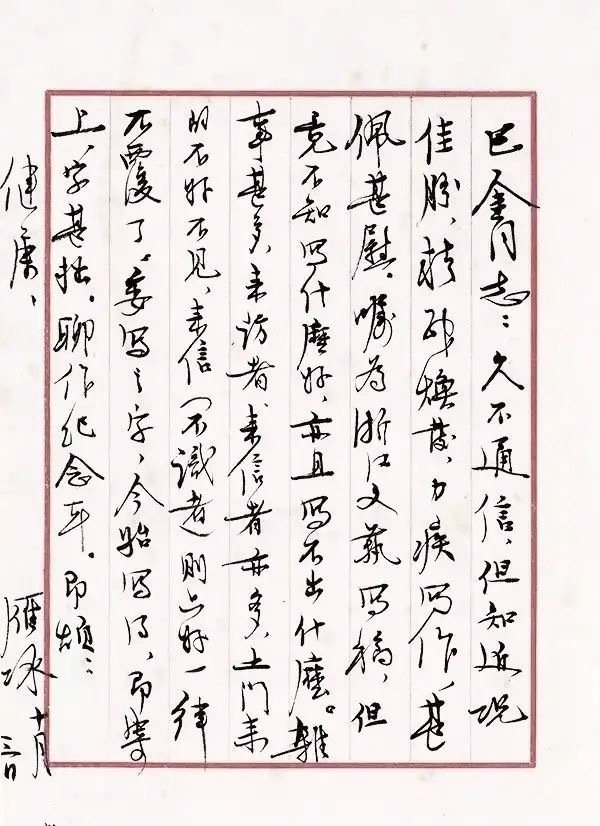 巴金同志：久不通信，但知近况
佳胜，精神焕发，力疾写作，甚
佩甚慰。嘱为浙江文艺写稿，但
竟不知写什麽好，亦且写不出什麽。雜
事甚多，来访者、来信者亦多，上门来
的不好不见，来信（不識者）則只好一律
不覆了。委写之字，今始写得，即寄
上，字甚拙，聊作纪念耳。即頌：
健康、
雁冰 十月
三日